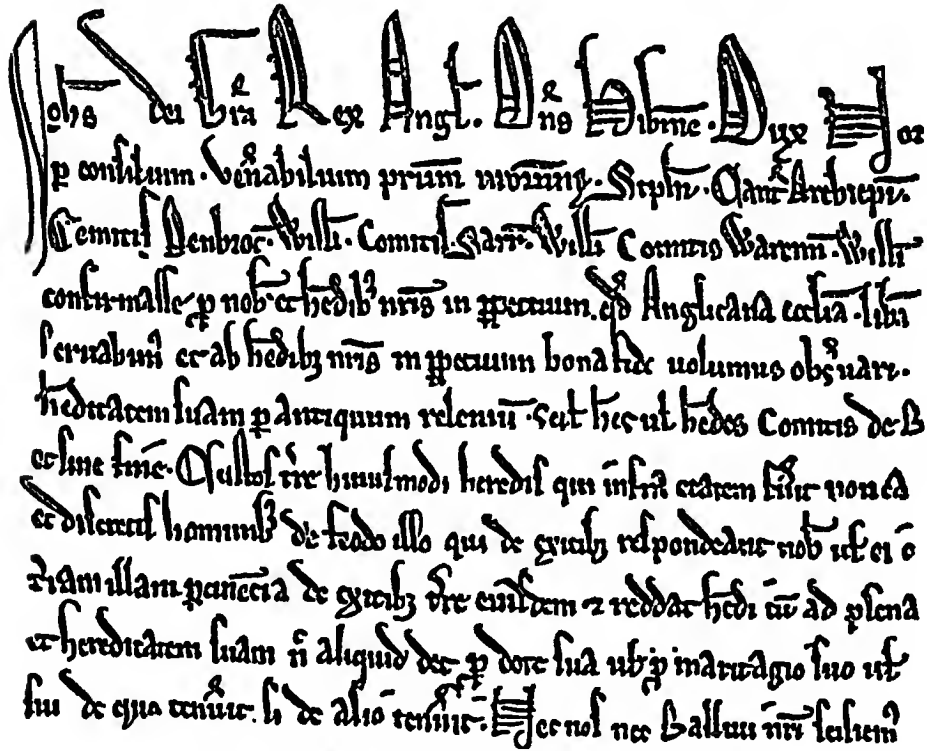 Johs dei Gra Rex Angl. Dns Hibnie. Dux No
p consilium. Venabilium prum nrorum. Stephi. Cant Archiepi.
Comitis Penbroc. Willi. Comitis. Sarr. Willi Comitis Warenn. Willi
confirmasse p nob et hedib nris in ppetuum. qd Anglicana ecclia. liba
servabim et ab hedibz nris in ppetuum bona fide volumus obsvari.
heditatem suam p antiquum releviu. Scil hes vel hedes Comitis de B
et sine fine. Custos tre huiusmodi heredis qui infra etatem fuit non ca
et discretis hominib de feodo illo qui de exitibz respondeant nob vel ei
tram illam ptinecia de exitibz tre eiusdem & reddat hedi cu ad plena
et hereditatem suam n aliquid det p dote sua vel p maritagio suo vel
sui de equo tenuit. si de alio tenuit. Nec nos nec Ballivi nri seisiem